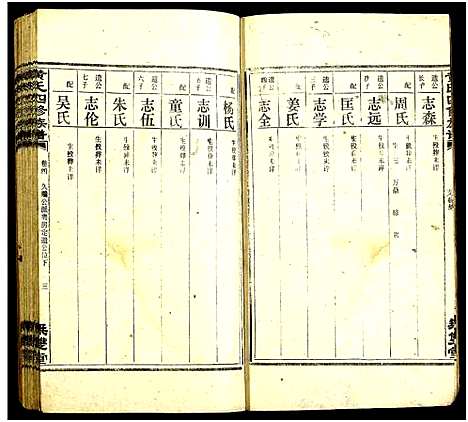 遗公长子 志森
配 周氏
遗公次子 志远 生殁葬未详
配 匡氏 生殁葬未详
遗公三子 志学 生殁葬未详
配 姜氏 生殁葬未详
志全 生殁葬未详
配 杨氏 生殁葬未详
遗公五子 志训 生殁葬未详
配 童氏 生殁葬未详
遗公六子 志伍 生殁葬未详
配 朱氏 生殁葬未详
遗公七子 志伦 生殁葬未详
配 吴氏 生殁葬未详
黄氏四修族谱 卷四 公位下 三 无双堂